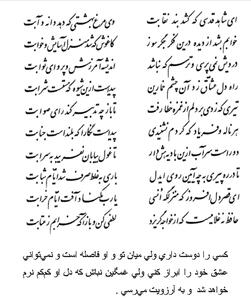 ای شاهد قدسی که کشد بند نقابت وی مرغ بهشتی که دهد دانه و آبت
خوابم بشد از دیده درین فکر جگر سوز کاغوش که شد منزل آسایش و خوابت
درویش نمی پرسی و ترسم که نباشد اندیشه آمرزش و پروای ثوابت
راه دل عشاق زد آن چشم خمارین پیداست ازین شیوه که مستست شرابت
تیری که زدی بر دلم از غمزه خطا رفت تا باز چه اندیشه کند رای صوابت
هر ناله و فریاد که کردم نشنیدی پیداست نگارا که بلندست جنابت
دورست سر آب ازین بادیه هش دار تا غول بیابان نفریبد به سرابت
تا در ره پیری به چه آیین روی ای دل باری به غلط صرف شد ایام شبابت
ای قصر دل افروز که منزلگه انسی یا رب مکناد آفت ایام خرابت
حافظ نه غلامیست که از خواجه گریزد لطفی کن و باز آ که خرابم ز عتابت
کسی را دوست داری ولی میان تو و او فاصله است و نمی‌توانی
عشق خود را ابراز کنی ولی غمگین نباش که دل او کم‌کم نرم
خواهد شد و به آرزویت می‌رسی .